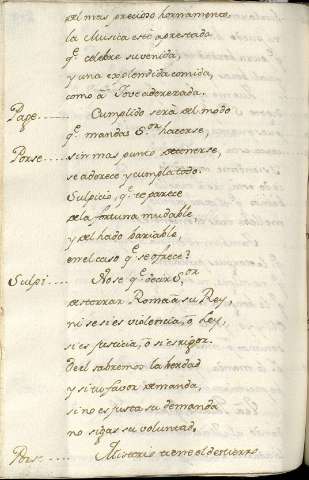 del mas precioso hornamento,
la Musica esté aprestada
q.e celebre su venida,
y una explendida comida,
como â Jove aderezada.
Page...... Cumplido será del modo
q.e mandas S.or hacerse,
Porse..... sin mas punto detenerse,
se aderece y cumpla todo.
Sulpicio, q.e te parece
de la fortuna mudable,
y del hado bariable,
en el caso q.e se ofrece?
Sulpi.... No se q.e decir S.or
desterrar Roma â su Rey,
ni se si es violencia, ô Ley,
si es justicia, ô si es rigor.
De el sabremos la berdad
y si tu favor demanda,
si no es justa su demanda
no sigas su voluntad.
Porse.... Misterio tiene el destierro